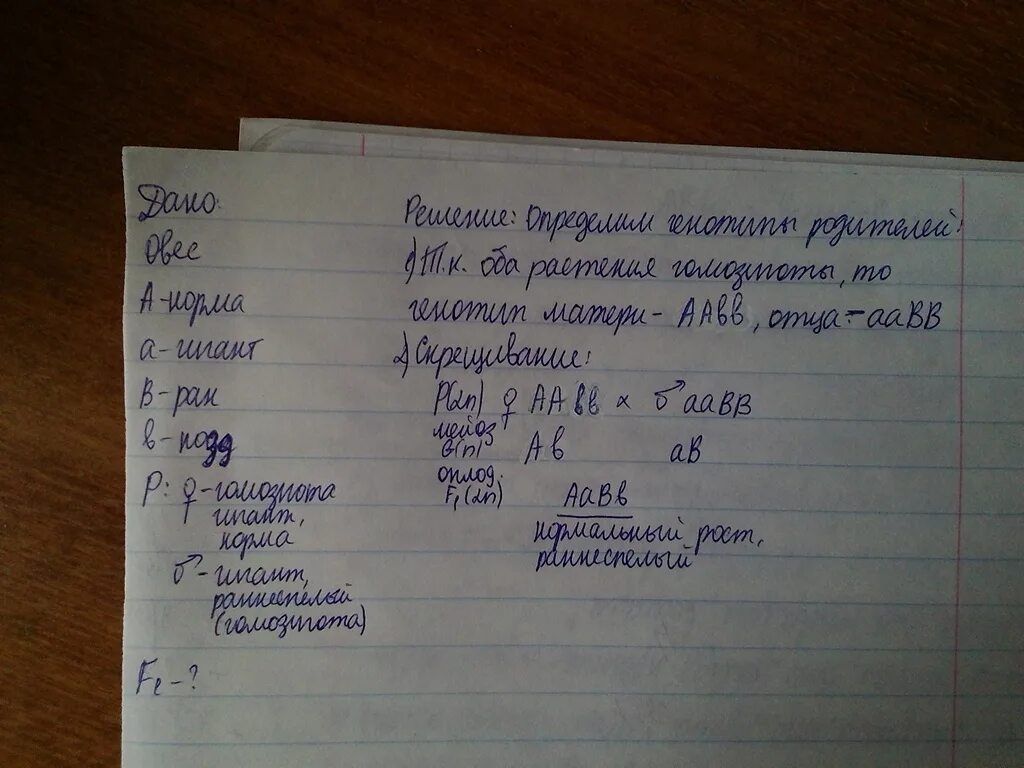 Дано:
Овес
А-норма
а-гигант
В-ран
в-позд
Р: ♀-гомозигота
гигант,
норма
♂-гигант,
раннеспелый
(гомозигота)
F₁-?
Решение: Определим генотипы родителей:
1) Т.к. оба растения гомозиготы, то
генотип матери - ААвв, отца - ааВВ
2) Скрещивание:
P(2n) ♀ ААвв × ♂ ааВВ
мейоз
G(n) Ав аВ
оплод.
F₁(2n) АаВв
нормальный рост,
раннеспелый